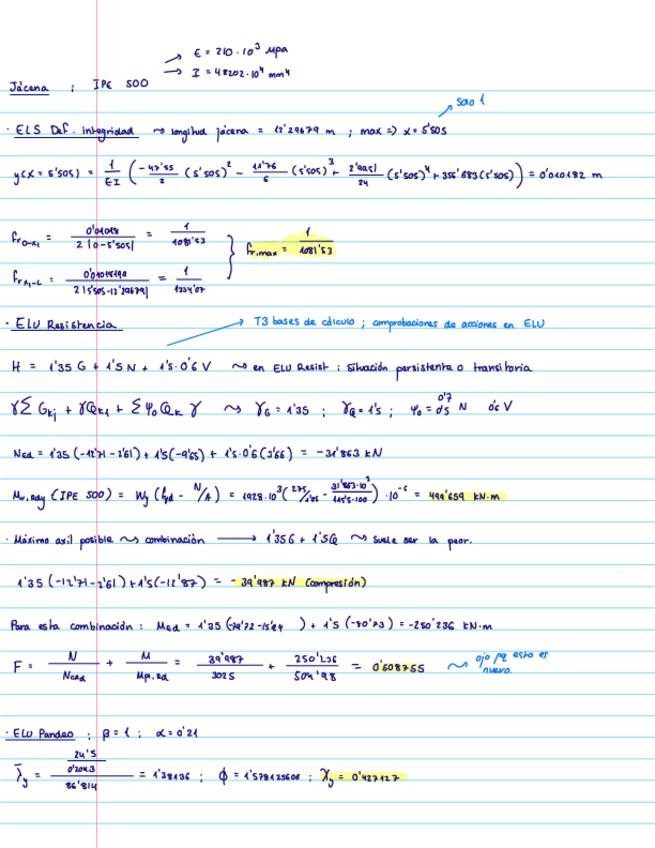 → E = 210·10³ Mpa
→ I = 48202·10⁴ mm⁴
Jácena ; IPE 500
Solo 1
· ELS Def. integridad ⇝ longitud jácena = 12'29679 m ; max => x = 5'505
y(x = 5'505) = 1/EI (-47'55/2 (5'505)² - 11'76/6 (5'505)³ + /24 (5'505)⁴ + 356'683(5'505)) = 0'010182 m
fr₀₋ₓ₁ = 0'01018/2|0-5'505| = 1/1081'53 } fr,max = 1/1081'53
frₓ₁₋L = /2|5'505-12'29679| = 1/1334'07
· ELU Resistencia → T3 bases de cálculo ; comprobaciones de acciones en ELU
H = 1'35 G + 1'5 N + 1'5·0'6 V ⇝ en ELU Resist : Situación persistente o transitoria
γΣ Gkj + γQk1 + Σψ₀Qk γ ⇝ γG = 1'35 ; γQ = 1'5 ; ψ₀ = 0'5 0'7 N 0'6 V
Ned = 1'35(-12'71 - 2'61) + 1'5(-9'65) + 1'5·0'6(3'66) = -31'863 kN
(IPE 500) = Wy (fyd - N/A) = 1928·10³(275/1'05 - 31'863·10³/115'5·100)·10⁻⁶ = 499'659 kN·m
· Máximo axil posible ⇝ combinación → 1'35G + 1'5Q ⇝ suele ser la peor.
1'35(-12'71-2'61)+1'5(-12'87) = -39'987 kN (compresión)
Para esta combinación : Med = 1'35 (-79'72-15'84) + 1'5(-80'73) = -250'236 kN·m
F = N/NcRd + M/Mpl,Rd = 39'987/3025 + 250'236/504'98 = 0'508755 ⇝ ojo pq esto es nuevo.
· ELU Pandeo ; β = 1 ; α = 0'21
λ̄y = 24'5/0'2043/86'814 = 1'38136 ; ϕ = 1'578125608 ; χy = 0'427127